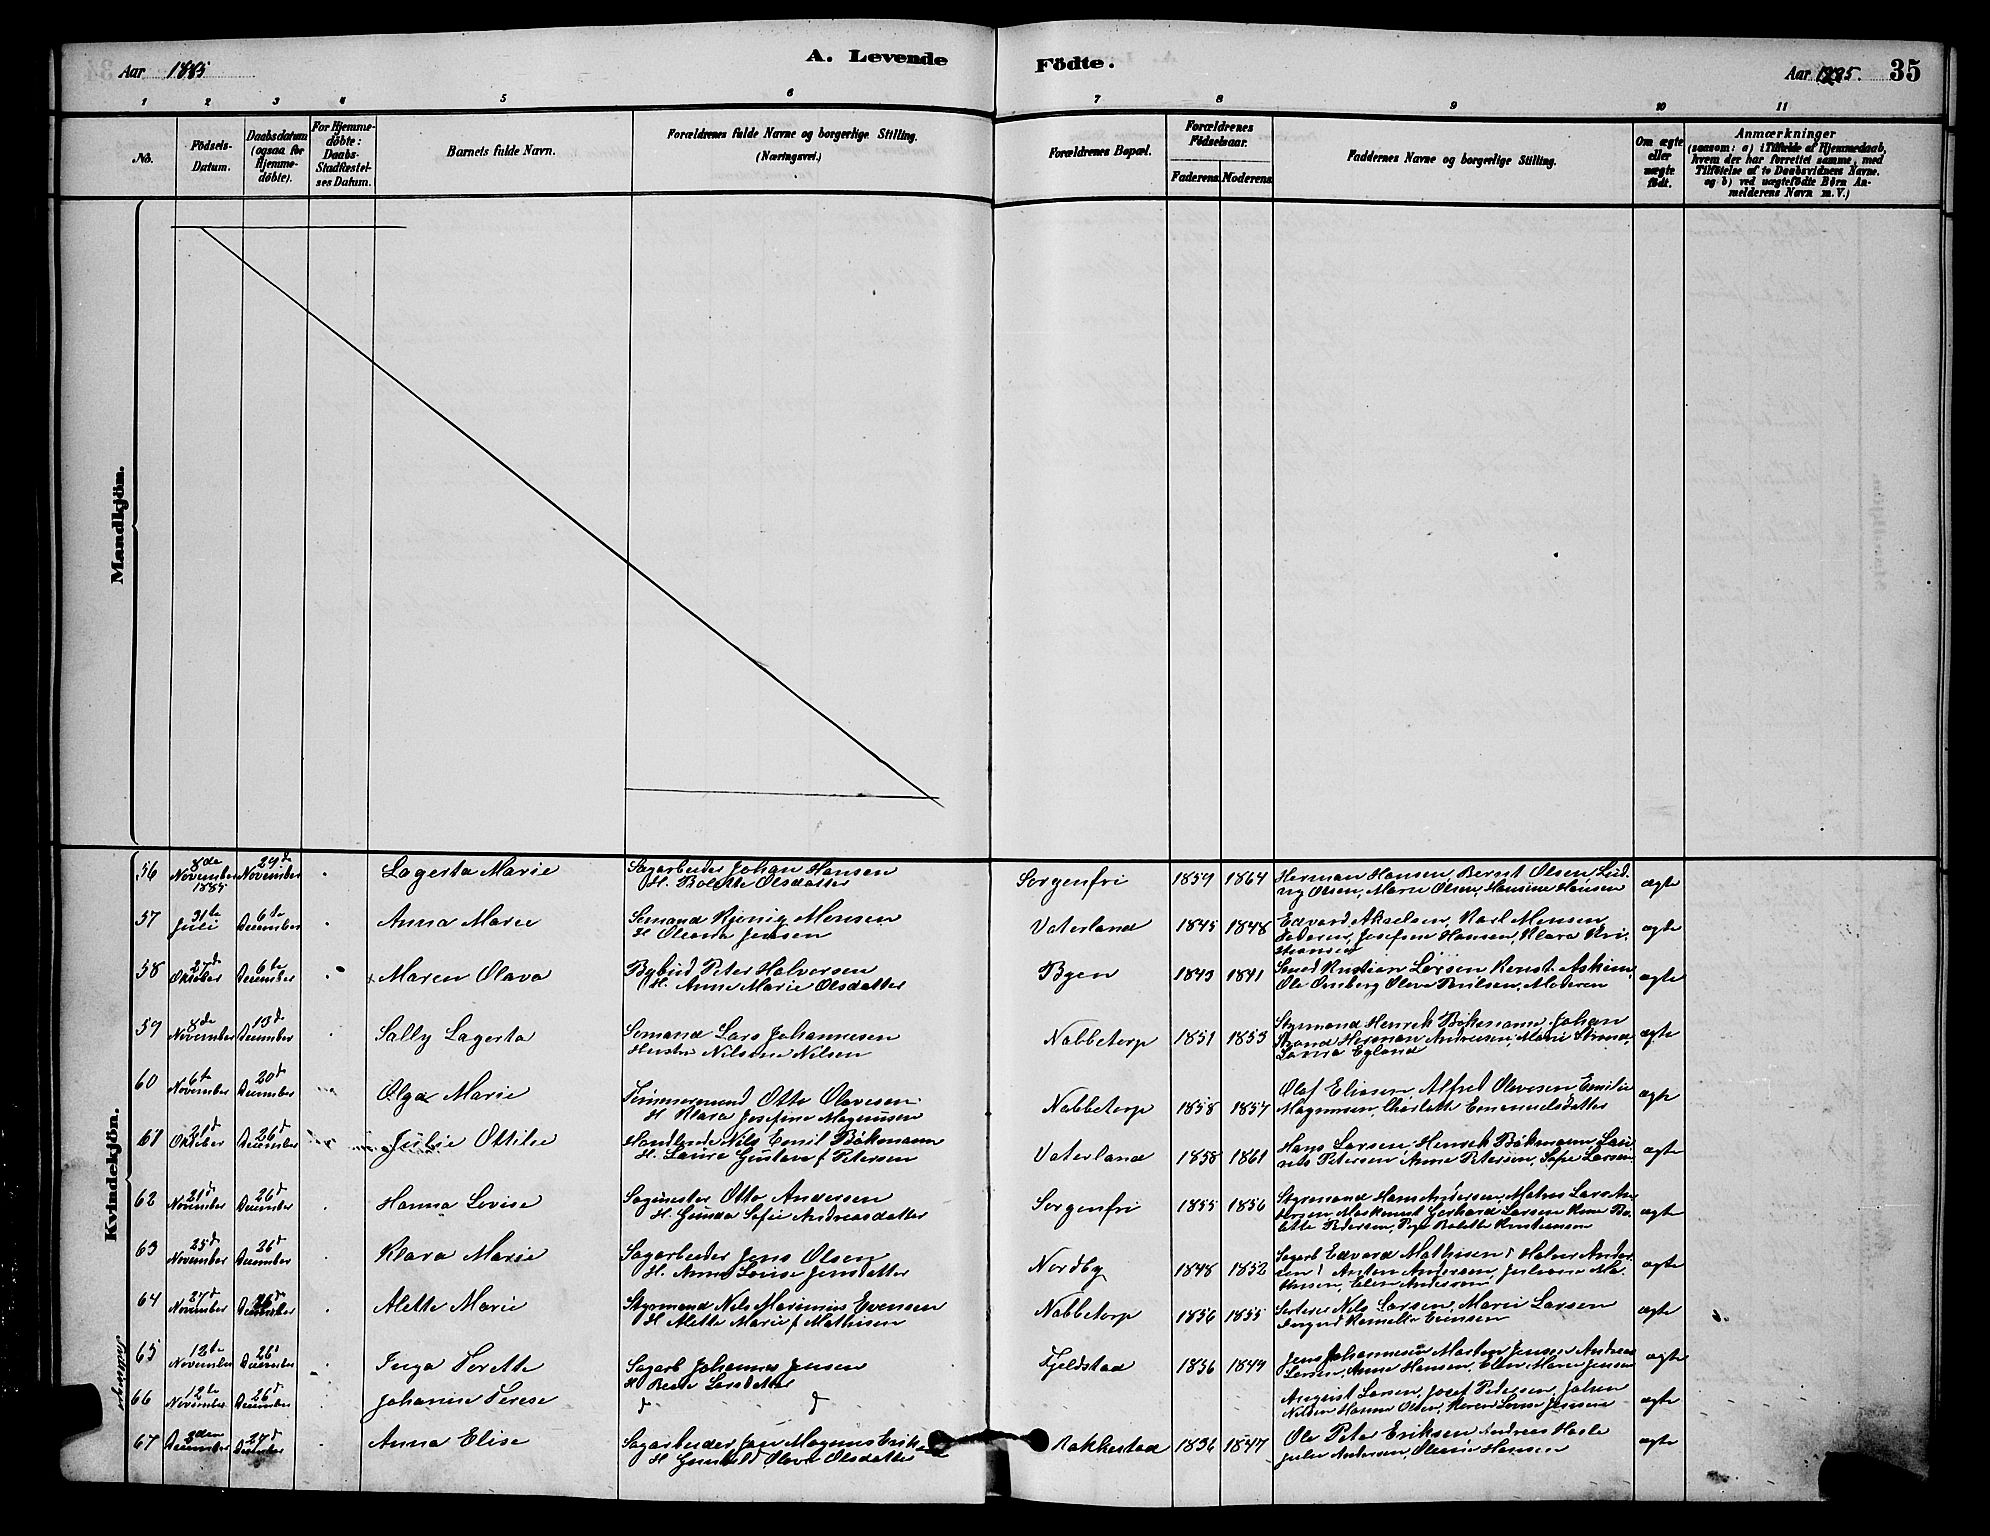 Aar 1885
A. Levende
Födte.
Aar 1885. 35
1 2 3 4 5 6 7 8 9 10 11
No.
Födsels-
Datum.
Daabsdatum
(ogsaa for
Hjemme-
döbte).
For Hjemme-
döbte:
Daabs-
Stadfæstel-
ses Datum.
Barnets fulde Navn.
Forældrenes fulde Navne og borgerlige Stilling.
(Næringsvei.)
Forældrenes Bopæl.
Forældrenes
Födselsaar.
Faderens. Moderens.
Faddernes Navne og borgerlige Stilling.
Om ægte
eller
uægte
födt.
Anmærkninger
(saasom: a) i Tilfælde af Hjemmedaab,
hvem der har forrettet samme, med
Tilföielse af to Daabsvidners Navne,
og b) ved uægtefödte Börn An-
melderens Navn m.V.)
Mandkjön.
Kvindekjön.
56 8de November 1885 29de November Lagerta Marie Sagarbeider Johan Hansen
H. Bolette Olsdatter Sorgenfri 1859 1864 Herman Hansen, Bernt Olsen, Lud-
vig Olsen, Marie Olsen, Hansine Hansen ægte
57 31te Juli 6te December Anna Marie Sömand Kjönig Monsen
H. Oleane Jensen Vaterland 1845 1848 Edvard Akselsen, Karl Monsen,
Faderen, Josefine Hansen, Klara Kri-
stiansen ægte
58 27de Oktober 6te December Maren Olava Bybud Peter Halvorsen
H. Anne Marie Olsdatter Byen 1843 1841 Smed Kristian Larsen
Moderen ægte
59 8de November 13de December Sally Lagerta Sömand Lars Johannesen
Nilsine Nilsen Nabbetorp 1851 1853 Styrmand Henrik Bökmann, Johan
Strand, Herman Andresen, Marie Strand,
Laura Egland ægte
60 6te November 20de December Olga Marie Tömmermand Otto Olavesen
H. Klara Josefine Magnusen Nabbetorp 1858 1857 Olaf Eliasen, Alfred Olavesen, Emilie
Magnusen, Charlotte Emanuelsdatter ægte
61 21de Oktober 26de December Julie Ottilie Handlende Nils Emil Bökmann
H. Laura Gustava f. Petersen Vaterland 1858 1861 Hans Larsen, Henrik Bökmann, Lau-
rits Petersen, Anna Petersen, Sofie Larsen ægte
62 21de November 26de December Hanna Lovise Sagmester Otto Andersen
H. Gunda Sofie Andreasdatter Sorgenfri 1855 1856 Styrmand Hans Andersen, Lars An-
dersen, Maskinist Gerhard Larsen, Kone Bo-
lette Pedersen, Pige Bolette Kristiansen ægte
63 25de November 26de December Klara Marie Sagarbeider Jens Olsen
H. Anne Lovise Jensdatter Nordby 1848 1852 Sagarb. Edvard Mathisen, Halvor Ander-
sen, Anton Andersen, Juliane Ma-
thisen, Elen Andersen ægte
64 27de November 26de December Alette Marie Styrmand Nils Marinius Evensen
H. Alette Marie f. Mathisen Nabbetorp 1856 1855 Sorterer Nils Larsen, Marie Larsen
Evensen ægte
65 12te November 26de December Inga Torette Sagarb. Johannes Jensen
H. Beate Larsdatter Fjeldstad 1836 1849 Jens Johannesen, Morten Jensen, Andreas
Larsen, Anne Hansen, Elen Marie Jensen ægte
66 12te November 26de December Johanne Terese d d August Larsen, Josef Pedersen, Johan
Nilsen, Hanna Olsen, Karen Lovise Jensen ægte
67 3den December 27de December Anna Elise Sagarbeider Jan Magnus Erik-
H. Gunhild Olava Olsdatter Rakkestad 1836 1847 Ole Peter Eriksen, Andreas Hasle
Julie Andersen, Oleane Hansen ægte